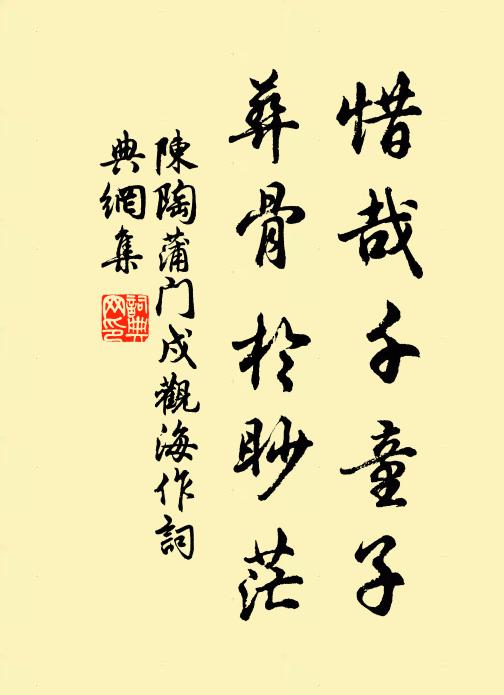 惜哉千童子
葬骨於眇茫
陳陶蒲門戍觀海作詞
典網集
詞典網印